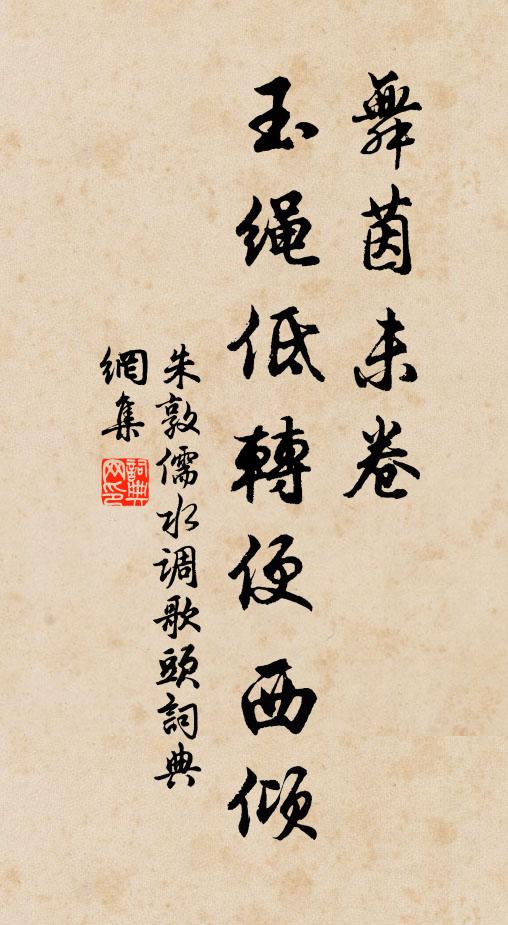 舞茵未卷
玉绳低轉便西倾
朱敦儒水调歌頭詞典
網集
詞典
网印